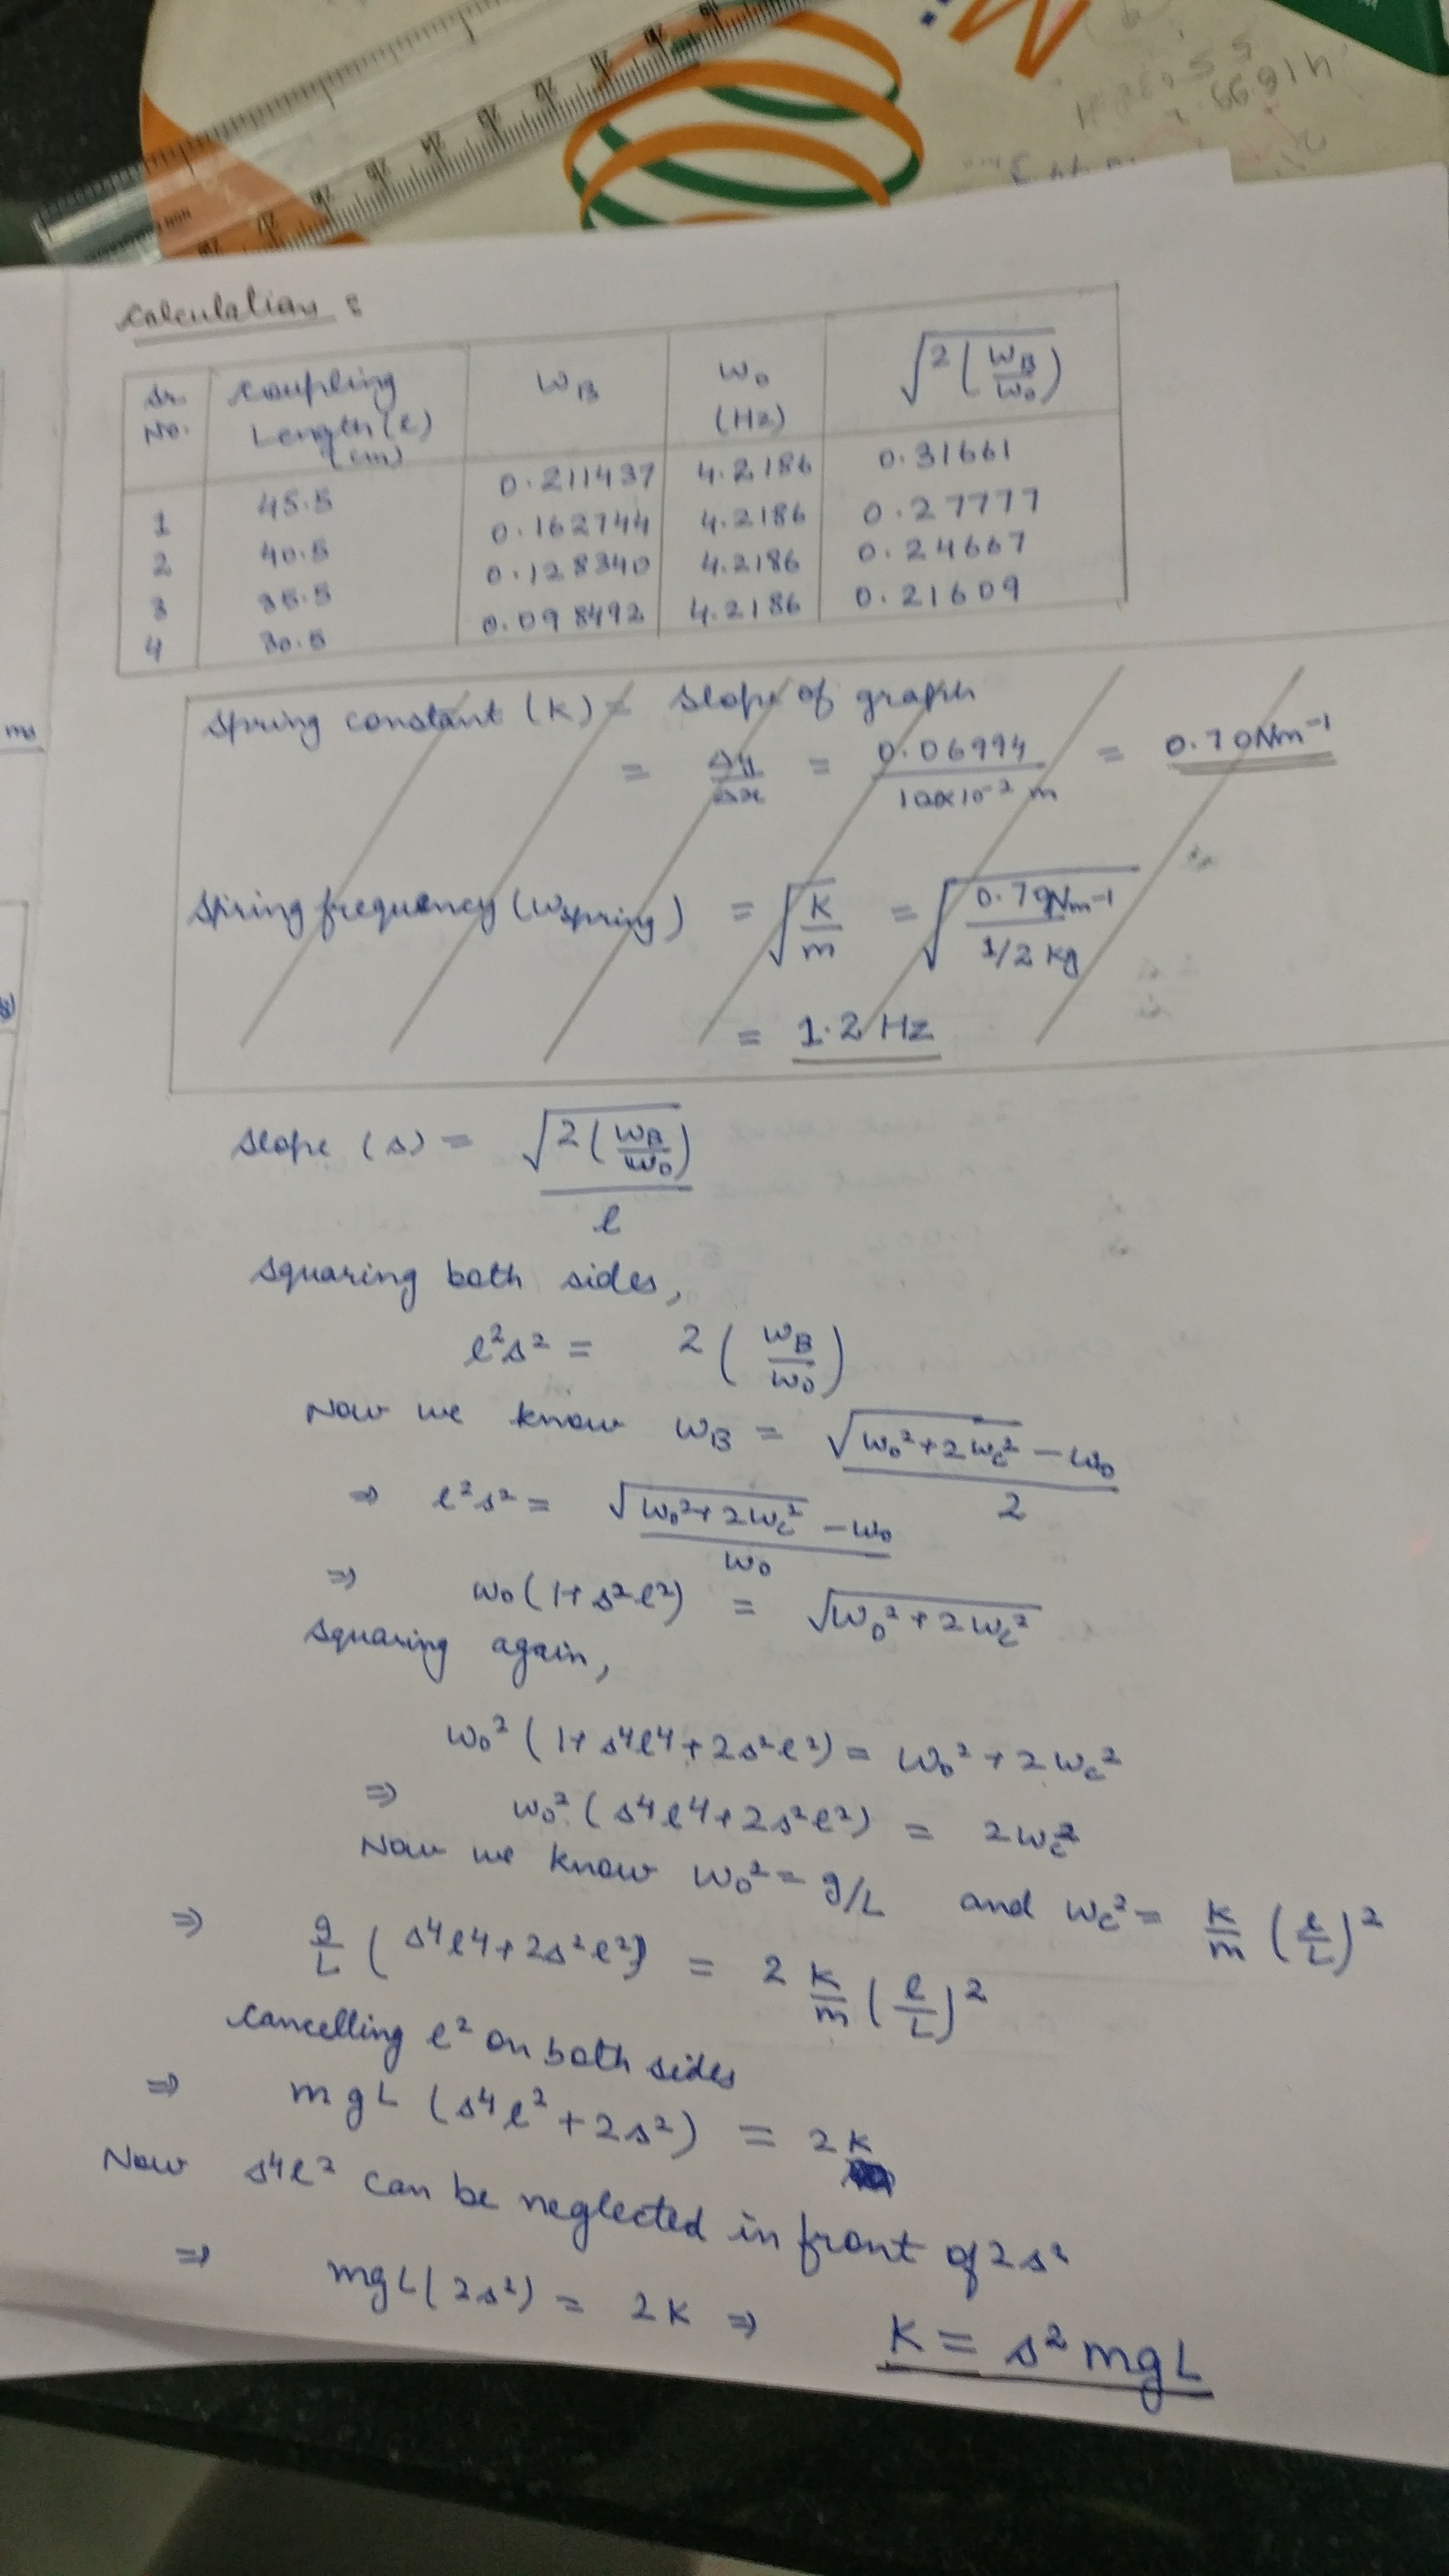 Calculation :
Sr. No. | Coupling Length (l) (cm) | WB | W0 (Hz) | √2(WB/W0)
1 | 45.5 | 0.211437 | 4.2186 | 0.31661
2 | 40.5 | 0.162744 | 4.2186 | 0.27777
3 | 35.5 | 0.128340 | 4.2186 | 0.24667
4 | 30.5 | 0.098492 | 4.2186 | 0.21609
Spring constant (K) = slope of graph
= Δy/Δx = 0.06994/10×10⁻² m = 0.70Nm⁻¹
Spring frequency (wspring) = √K/m = √0.70Nm⁻¹/1/2 kg
= 1.2 Hz
slope (s) = √2(WB/W0)/l
squaring both sides,
l²s² = 2(WB/W0)
Now we know WB = √W0²+2Wc² - W0/2
⇒ l²s² = √W0²+2Wc² - W0/W0
⇒ W0(1+s²l²) = √W0²+2Wc²
squaring again,
W0²(1+s⁴l⁴+2s²l²) = W0²+2Wc²
⇒ W0²(s⁴l⁴+2s²l²) = 2Wc²
Now we know W0² = g/L and Wc² = K/m (l/L)²
⇒ g/L (s⁴l⁴+2s²l²) = 2 K/m (l/L)²
cancelling l² on both sides
⇒ mgL (s⁴l²+2s²) = 2K
Now s⁴l² can be neglected in front of 2s²
⇒ mgL(2s²) = 2K ⇒ K = s²mgL